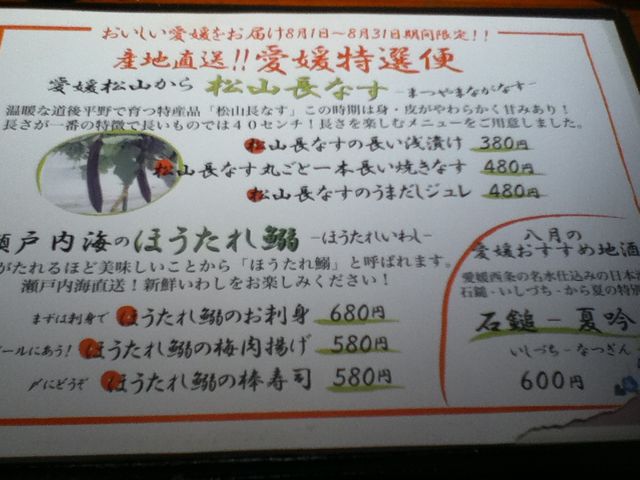 おいしい愛媛をお届け8月1日～8月31日期間限定!!
産地直送!!愛媛特選便
愛媛松山から 松山長なす -まつやまながなす-
温暖な道後平野で育つ特産品「松山長なす」この時期は身・皮がやわらかく甘みあり!
長さが一番の特徴で長いものでは40センチ!長さを楽しむメニューをご用意しました。
松山長なすの長い浅漬け 380円
松山長なす丸ごと一本長い焼きなす 480円
松山長なすのうまだしジュレ 480円
瀬戸内海のほうたれ鰯 -ほうたれいわし-
がたれるほど美味しいことから「ほうたれ鰯」と呼ばれます。
瀬戸内海直送!新鮮いわしをお楽しみください!
まずは刺身で ほうたれ鰯のお刺身 680円
ールにあう! ほうたれ鰯の梅肉揚げ 580円
〆にどうぞ ほうたれ鰯の棒寿司 580円
八月の
愛媛おすすめ地酒
愛媛西条の名水仕込みの日本
石鎚-いしづち-から夏の特別
石鎚-夏吟
いしづち-なつぎん
600円